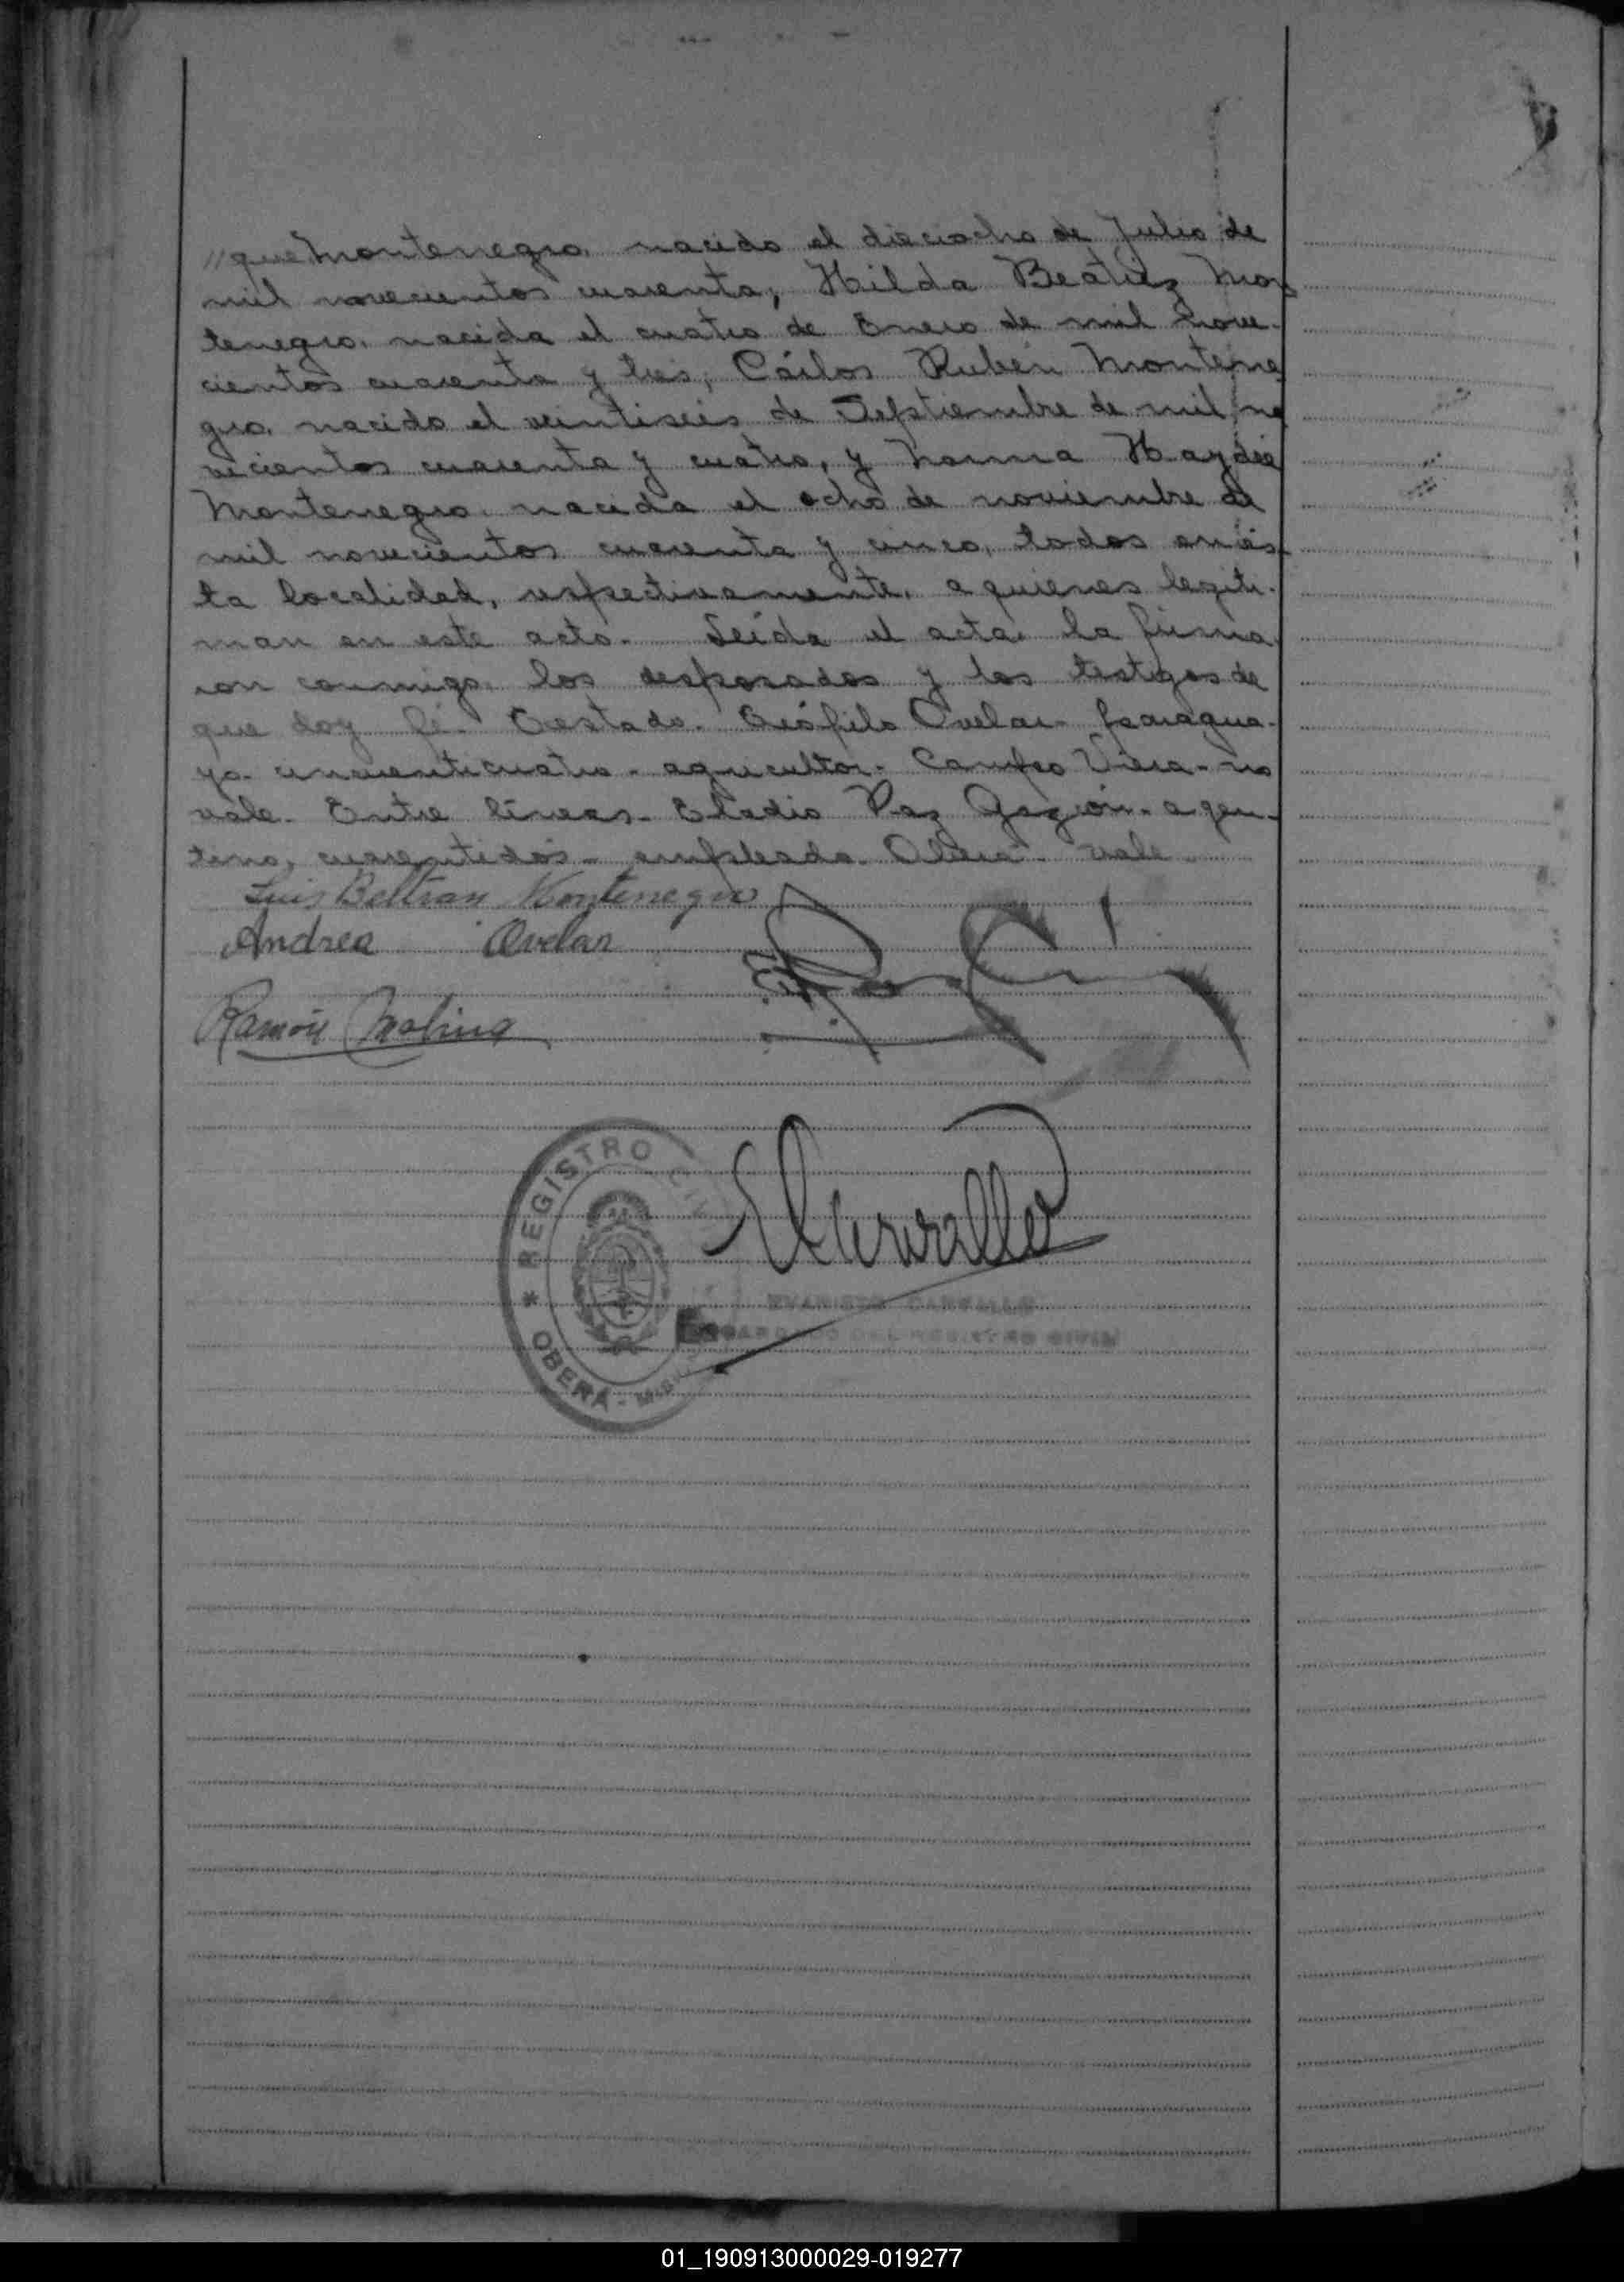 //que Montenegro, nacido el dieciocho de Julio de
mil novecientos cuarenta; Hilda Beatriz Mon
tenegro, nacida el cuatro de Enero de mil nove-
cientos cuarenta y tres; Cárlos Rubén Montene
gro, nacido el veintiseis de Septiembre de mil no
vecientos cuarenta y cuatro, y Norma Haydée
Montenegro, nacida el ocho de noviembre de
mil novecientos cuarenta y cinco, todos en és-
ta localidad, respectivamente, a quienes legiti-
man en este acto. Leída el acta, la firma
ron conmigo, los desposados y los testigos de
que doy fé. Testado. Teófilo Ovelar- paragua-
yo- cincuenticuatro- agricultor- Campo Viera- no
vale. Entre líneas- Eladio Paz - argen-
tino, cuarentidós- empleado- Oberá- vale
Luis Beltran Montenegro
Andrea Ovelar
Ramón Molina
REGISTRO CIVIL
* OBERÁ - MISIONES
EVARISTO CARVALLO
ENCARGADO DEL REGISTRO CIVIL
01_190913000029-019277